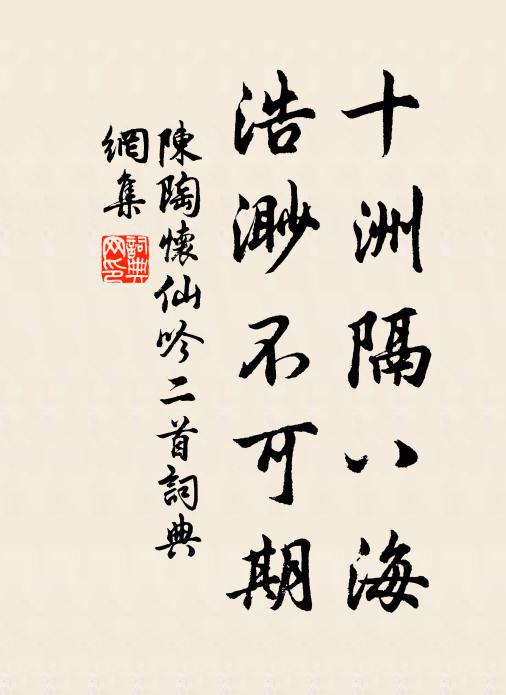 十洲隔八海
浩渺不可期
陳陶懷仙吟二首詞典
網集
詞典网印